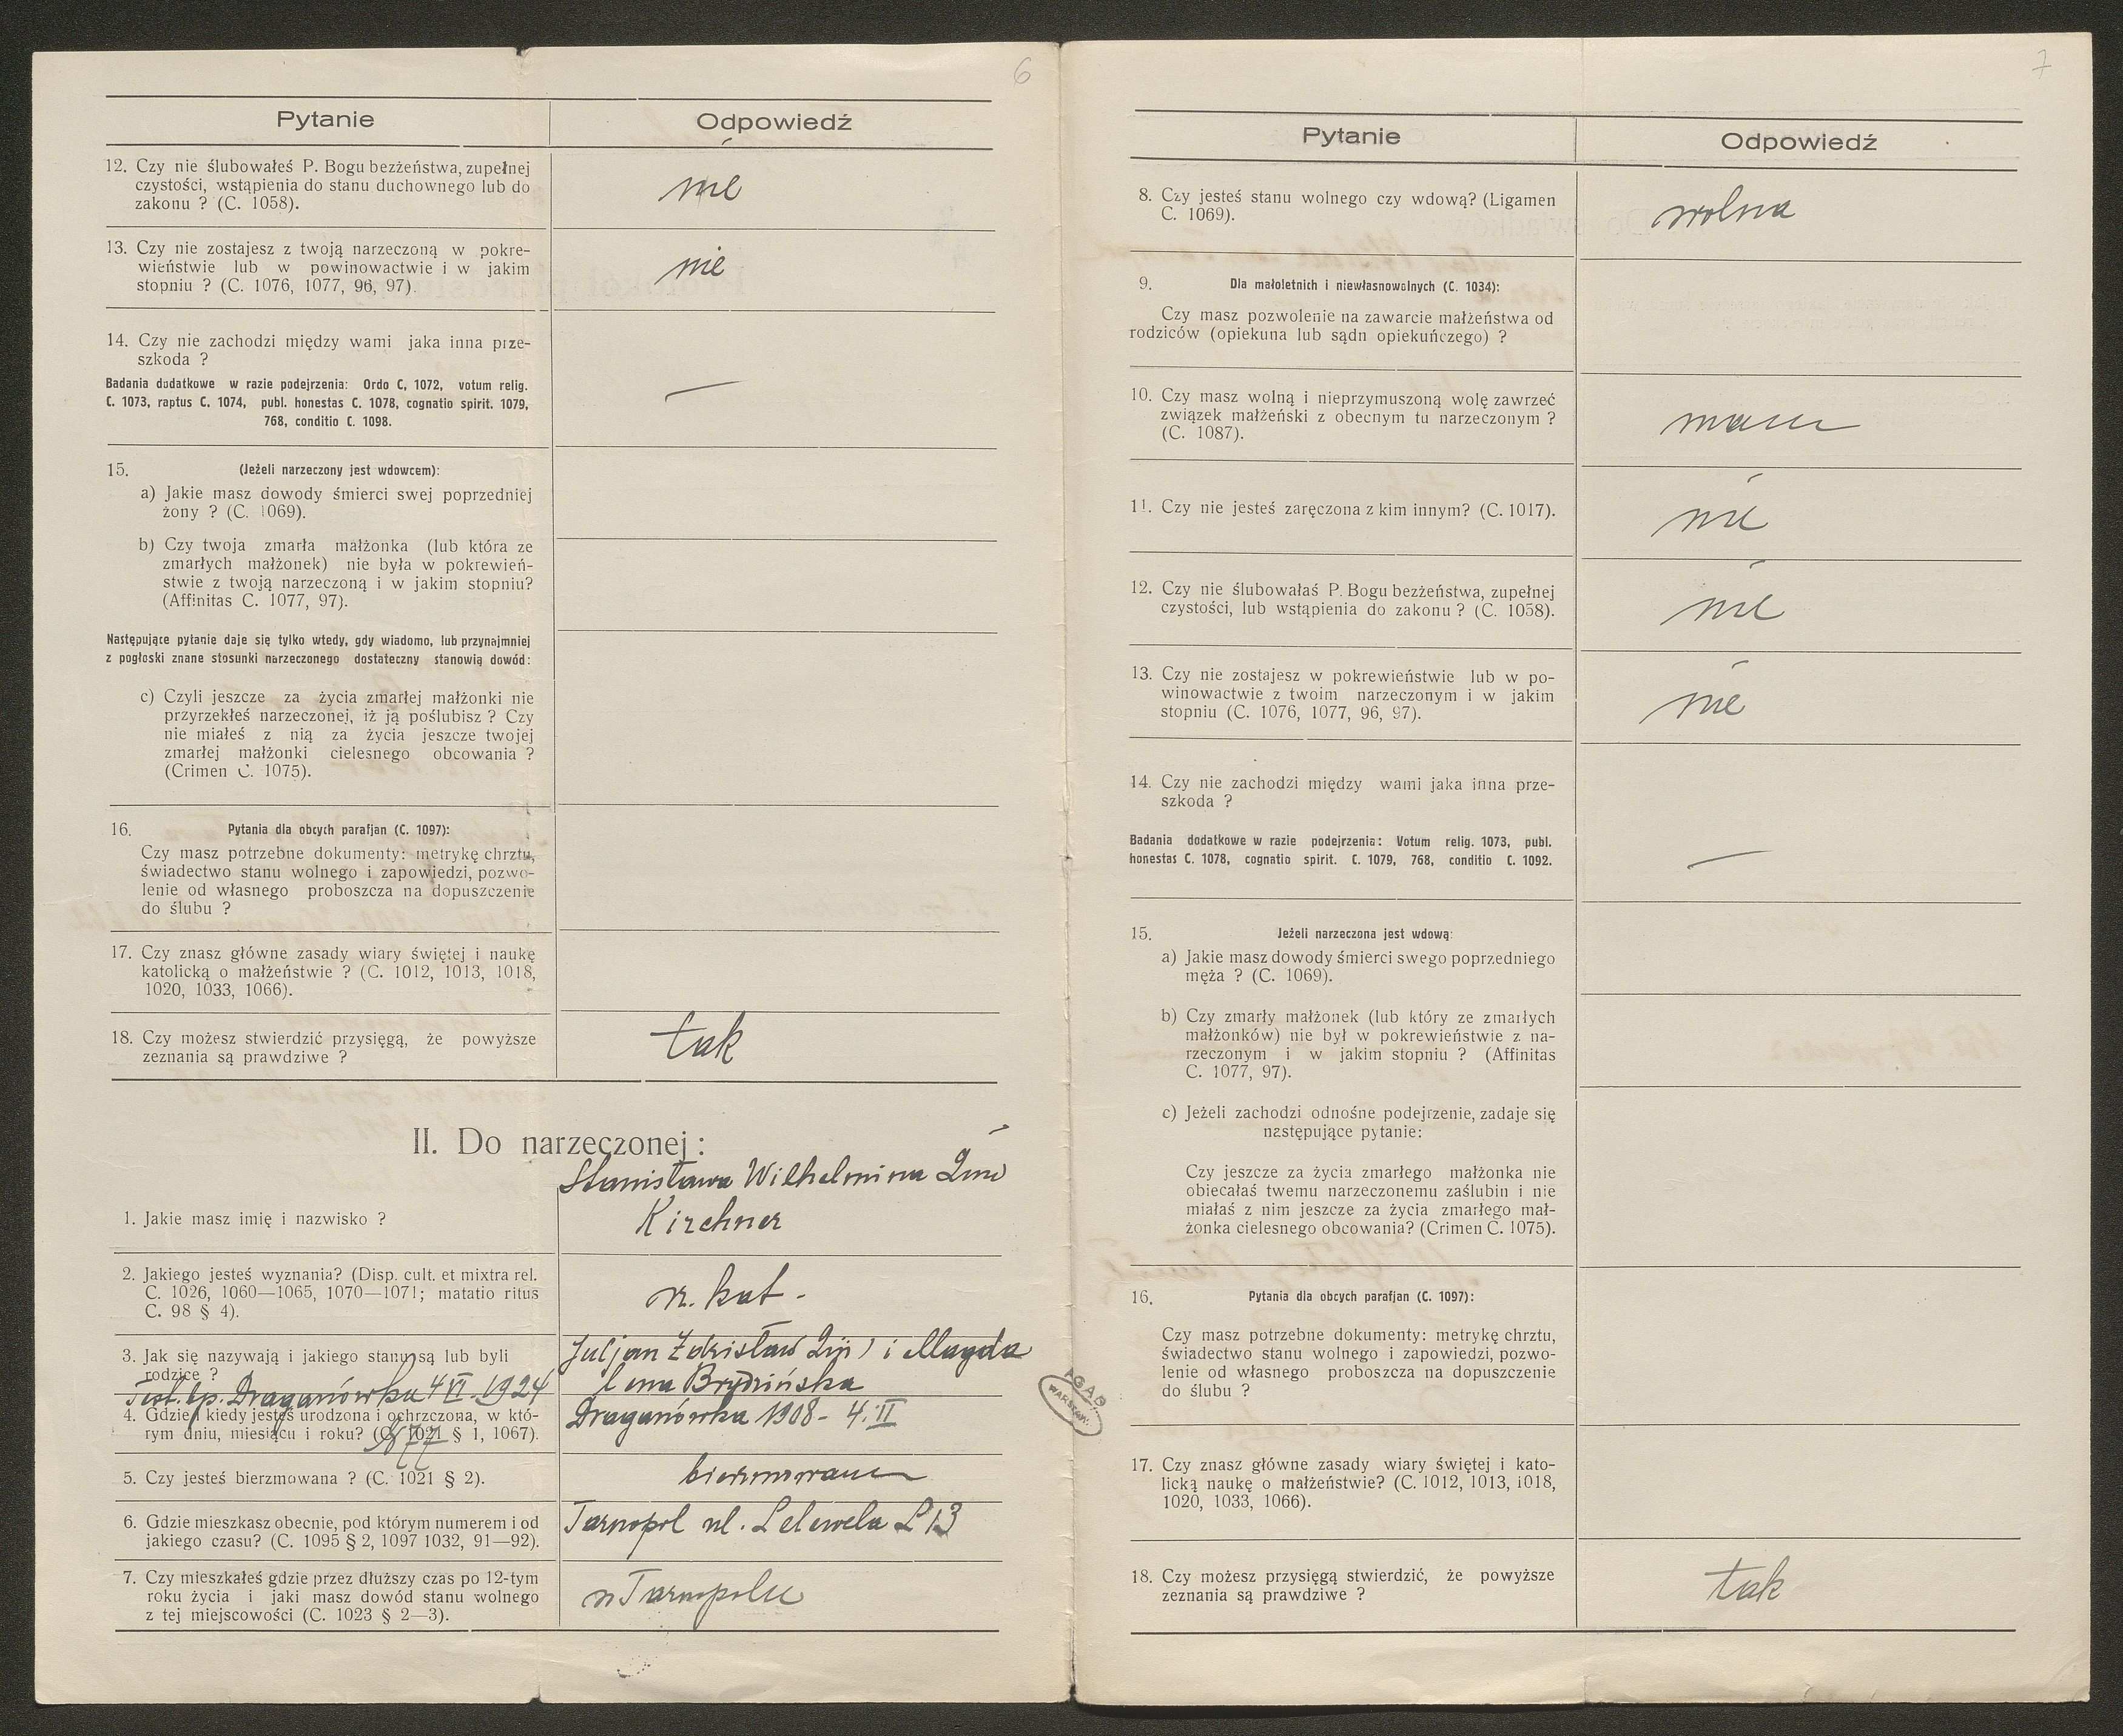 6
Pytanie
Odpowiedź
12. Czy nie ślubowałeś P. Bogu bezżeństwa, zupełnej
czystości, wstąpienia do stanu duchownego lub do
zakonu ? (C. 1058).
nie
13. Czy nie zostajesz z twoją narzeczoną w pokre-
wieństwie lub w powinowactwie i w jakim
stopniu ? (C. 1076, 1077, 96, 97).
nie
14. Czy nie zachodzi między wami jaka inna prze-
szkoda ?
Badania dodatkowe w razie podejrzenia: Ordo C, 1072, votum relig.
C. 1073, raptus C. 1074, publ. honestas C. 1078, cognatio spirit. 1079,
768, conditio C. 1098.
—
15. (Jeżeli narzeczony jest wdowcem):
a) Jakie masz dowody śmierci swej poprzedniej
żony ? (C. 1069).
b) Czy twoja zmarła małżonka (lub która ze
zmarłych małżonek) nie była w pokrewień-
stwie z twoją narzeczoną i w jakim stopniu?
(Affinitas C. 1077, 97).
Następujące pytanie daje się tylko wtedy, gdy wiadomo, lub przynajmniej
z pogłoski znane stosunki narzeczonego dostateczny stanowią dowód:
c) Czyli jeszcze za życia zmarłej małżonki nie
przyrzekłeś narzeczonej, iż ją poślubisz ? Czy
nie miałeś z nią za życia jeszcze twojej
zmarłej małżonki cielesnego obcowania ?
(Crimen C. 1075).
16. Pytania dla obcych parafjan (C. 1097):
Czy masz potrzebne dokumenty: metrykę chrztu,
świadectwo stanu wolnego i zapowiedzi, pozwo-
lenie od własnego proboszcza na dopuszczenie
do ślubu ?
17. Czy znasz główne zasady wiary świętej i naukę
katolicką o małżeństwie ? (C. 1012, 1013, 1018,
1020, 1033, 1066).
18. Czy możesz stwierdzić przysięgą, że powyższe
zeznania są prawdziwe ?
tak
II. Do narzeczonej :
Stanisława Wilhelmina
1. Jakie masz imię i nazwisko ?
Kirchner
2. Jakiego jesteś wyznania? (Disp. cult. et mixtra rel.
C. 1026, 1060—1065, 1070—1071; matatio ritus
C. 98 § 4).
r. kat.
3. Jak się nazywają i jakiego stanu są lub byli
rodzice ?
Juljan Zdzisław i Magda
lena Brydzińska
Test. bp. Draganówka 4 VI. 1924
4. Gdzie i kiedy jesteś urodzona i ochrzczona, w któ-
rym dniu, miesiącu i roku? (C. 1021 § 1, 1067).
Draganówka 1908 - 4. II
5. Czy jesteś bierzmowana ? (C. 1021 § 2).
bierzmowana
6. Gdzie mieszkasz obecnie, pod którym numerem i od
jakiego czasu? (C. 1095 § 2, 1097 1032, 91—92).
Tarnopol ul. Lelewela L 13
7. Czy mieszkałeś gdzie przez dłuższy czas po 12-tym
roku życia i jaki masz dowód stanu wolnego
z tej miejscowości (C. 1023 § 2—3).
w Tarnopolu
7
Pytanie
Odpowiedź
8. Czy jesteś stanu wolnego czy wdową? (Ligamen
C. 1069).
wolna
9. Dla małoletnich i niewłasnowolnych (C. 1034):
Czy masz pozwolenie na zawarcie małżeństwa od
rodziców (opiekuna lub sądn opiekuńczego) ?
10. Czy masz wolną i nieprzymuszoną wolę zawrzeć
związek małżeński z obecnym tu narzeczonym ?
(C. 1087).
mam
11. Czy nie jesteś zaręczona z kim innym? (C. 1017).
nie
12. Czy nie ślubowałaś P. Bogu bezżeństwa, zupełnej
czystości, lub wstąpienia do zakonu ? (C. 1058).
nie
13. Czy nie zostajesz w pokrewieństwie lub w po-
winowactwie z twoim narzeczonym i w jakim
stopniu (C. 1076, 1077, 96, 97).
nie
14. Czy nie zachodzi między wami jaka inna prze-
szkoda ?
Badania dodatkowe w razie podejrzenia: Votum relig. 1073, publ.
honestas C. 1078, cognatio spirit. C. 1079, 768, conditio C. 1092.
—
15. Jeżeli narzeczona jest wdową:
a) Jakie masz dowody śmierci swego poprzedniego
męża ? (C. 1069).
b) Czy zmarły małżonek (lub który ze zmarłych
małżonków) nie był w pokrewieństwie z na-
rzeczonym i w jakim stopniu ? (Affinitas
C. 1077, 97).
c) Jeżeli zachodzi odnośne podejrzenie, zadaje się
następujące pytanie:
Czy jeszcze za życia zmarłego małżonka nie
obiecałaś twemu narzeczonemu zaślubin i nie
miałaś z nim jeszcze za życia zmarłego mał-
żonka cielesnego obcowania? (Crimen C. 1075).
16. Pytania dla obcych parafjan (C. 1097):
Czy masz potrzebne dokumenty: metrykę chrztu,
świadectwo stanu wolnego i zapowiedzi, pozwo-
lenie od własnego proboszcza na dopuszczenie
do ślubu ?
AGAD
WARSZAWA
17. Czy znasz główne zasady wiary świętej i kato-
licką naukę o małżeństwie? (C. 1012, 1013, 1018,
1020, 1033, 1066).
18. Czy możesz przysięgą stwierdzić, że powyższe
zeznania są prawdziwe ?
tak